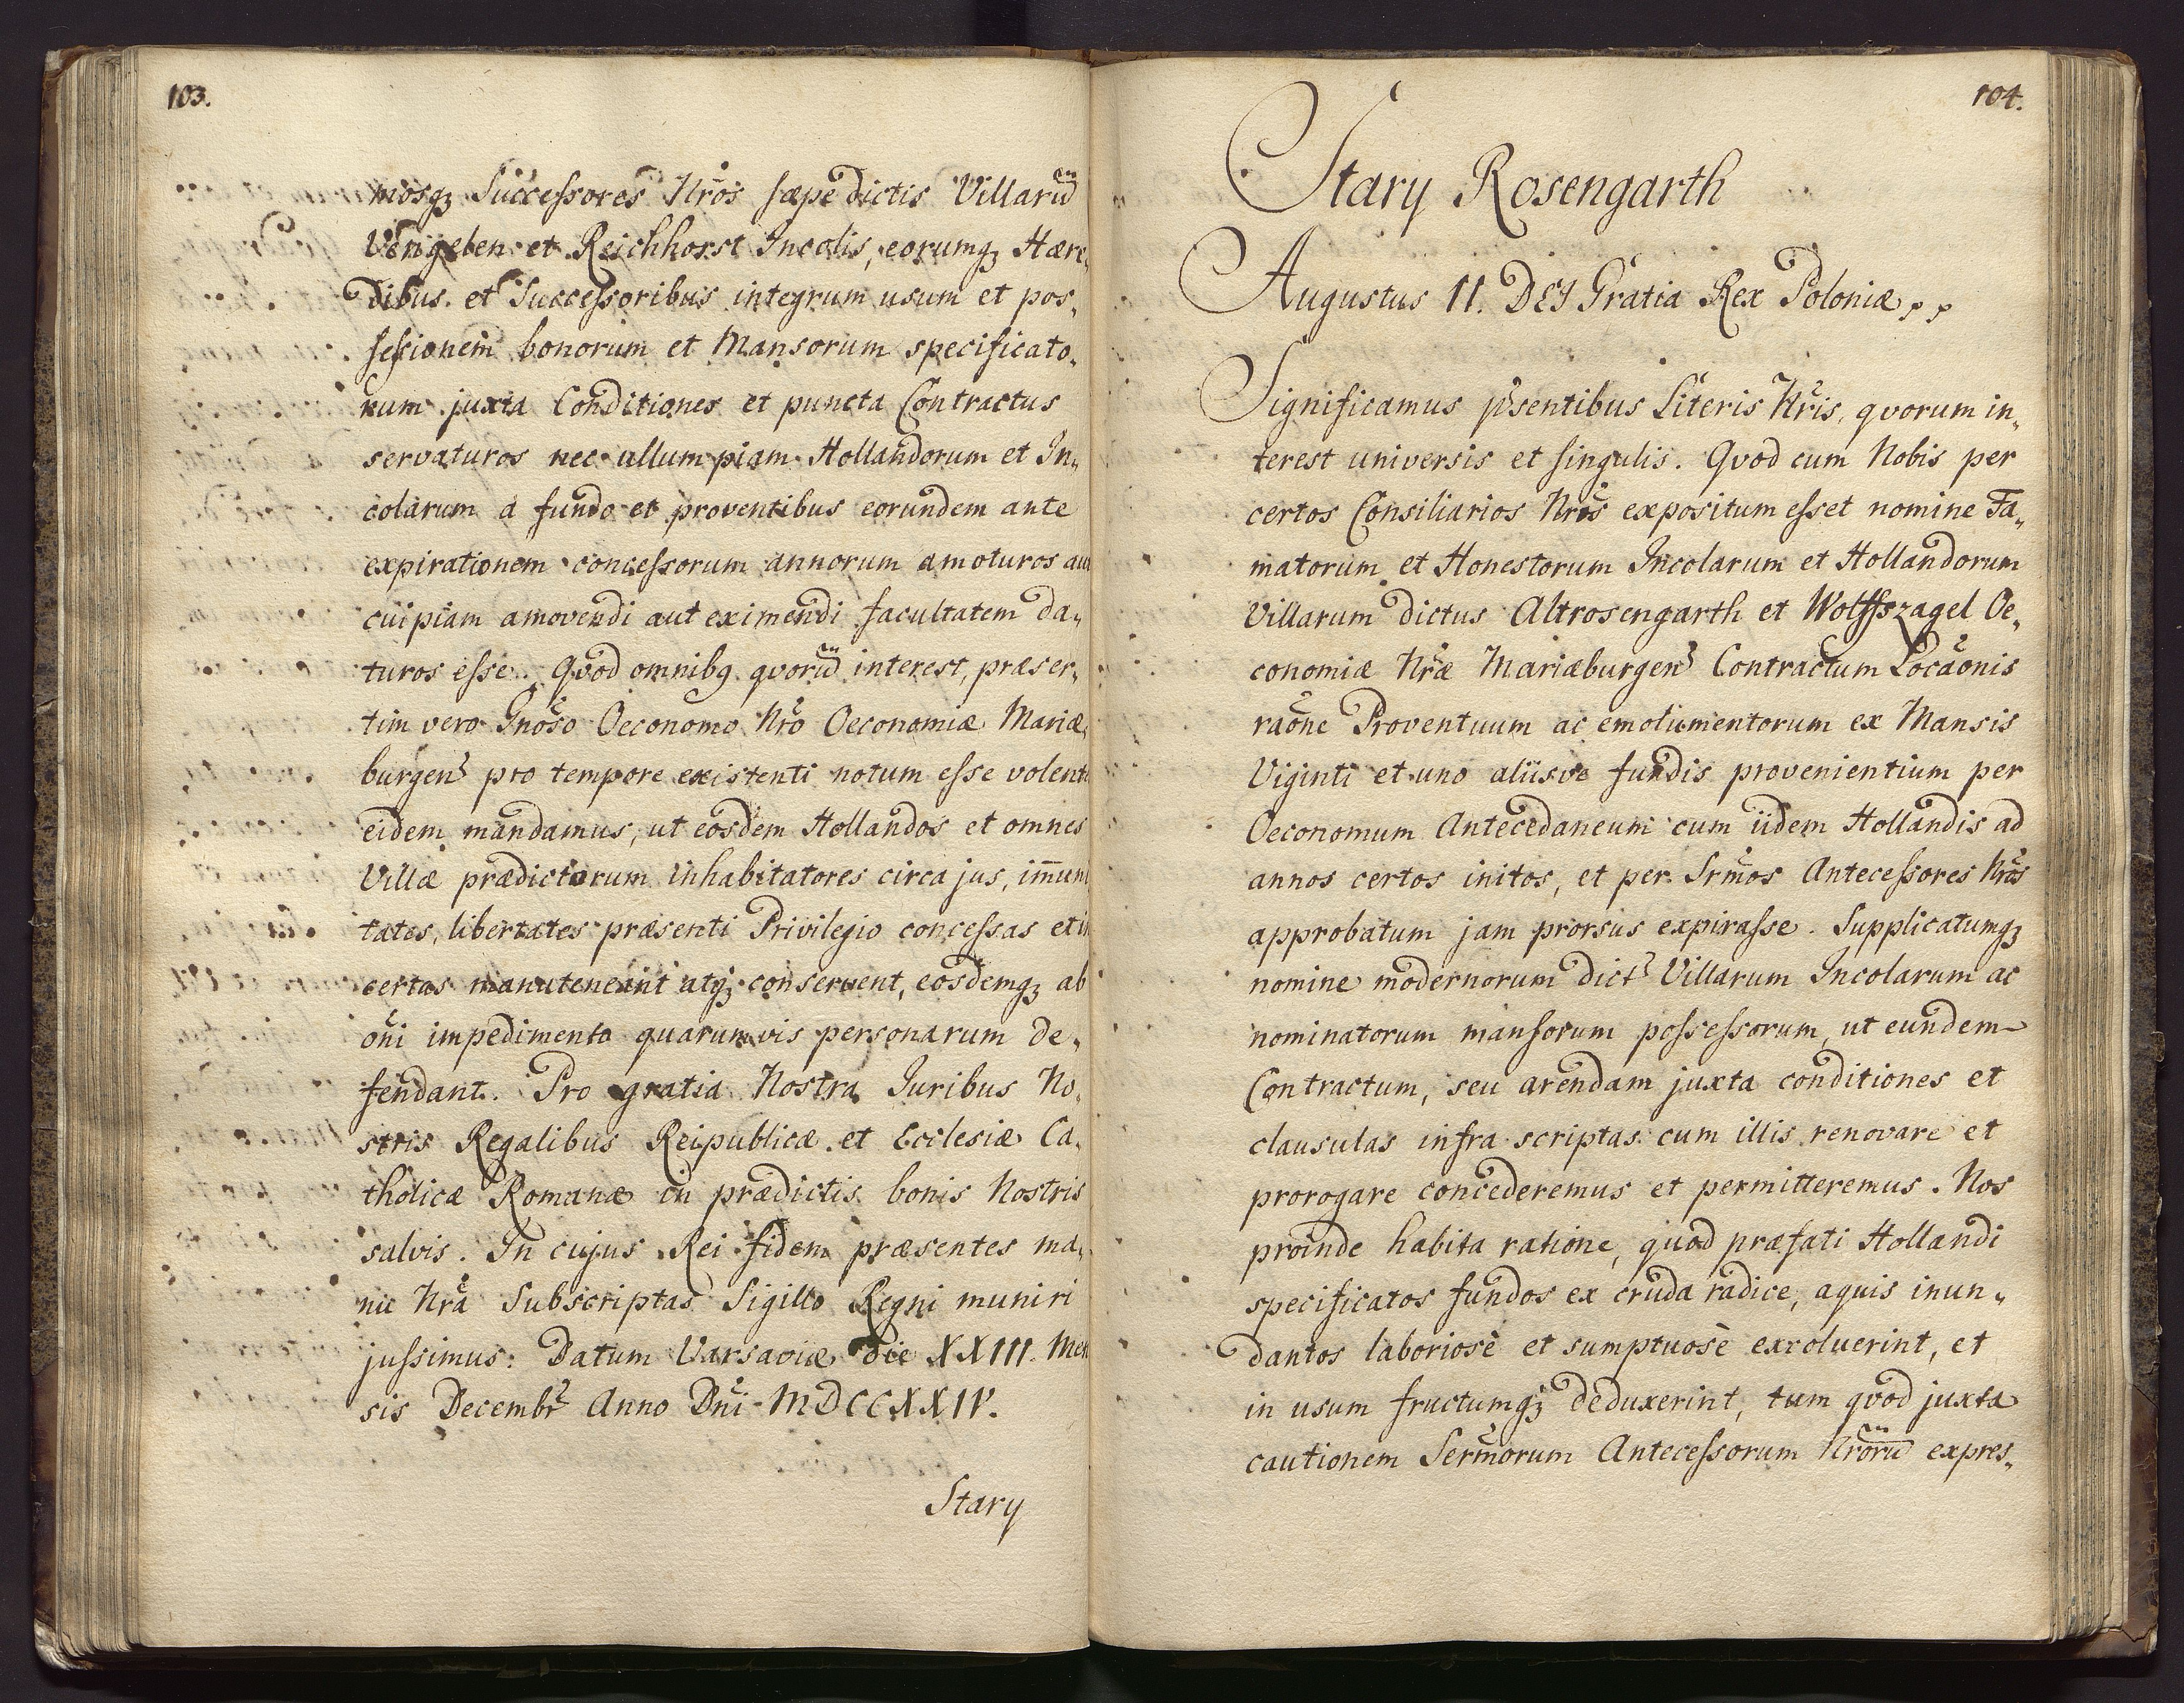 103.
mosqȝ Succeſsores Nr̃os sæpe dictis Villarũ
Vengelen et Reichhorst Incolis, eorumqȝ Hære„
dibus et Succeſsoribus integrum usum et pos„
seſsionem bonorum et Mansorum specificato„
rum juxta Conditiones et puncta Contractus
servaturos nec ullumpiam Hollandorum et In„
colarum a fundo et proventibus eorundem ante
expirationem conceſsorum annorum amoturos aut
cuipiam amovendi aut eximendi facultatem da„
turos eſse. Qvod omnibꝯ qvorũ interest, præser„
tim vero Gnoso Oeconomo Nr̃o Oeconomiæ Mariæ„
burgen̉ pro tempore existenti notum eſse volent
eidem mandamus, ut eosdem Hollandos et omnes
Villæ prædictarum inhabitatores circa jus, im̃uni
tates, libertates præsenti Privilegio conceſsas et in
certas manuteneant atqȝ conservent, eosdemqȝ ab
oñi impedimento quarumvis personarum de„
fendant. Pro gratia Nostra Juribus No„
stris Regalibus Reipublicæ et Ecclesiæ Ca„
tholicæ Romanæ in prædictis bonis Nostris
salvis. In cujus Rei fidem præsentes ma„
nu Nr̃a Subscriptas Sigillo Regni muniri
juſsimus. Datum Varsaviæ die XXIII. Men
sis Decembr̉ Anno Dñi MDCCXXIV.
Stary
104.
Stary Rosengarth
Augustus II. DEI Gratia Rex Poloniæ pp
Significamus p̃sentibus Literis Nr̃is, qvorum in„
terest universis et singulis. Qvod cum Nobis per
certos Consiliarios Nr̃os expositum eſset nomine Fa„
matorum et Honestorum Incolarum et Hollandorum
Villarum dictus Altrosengarth et Wolffszagel Oe„
conomiæ Nr̃æ Mariæburgen̉ Contractum Locãonis
raõne Proventuum ac emolumentorum ex Mansis
Viginti et uno aliisve fundis provenientium per
Oeconomum Antecedaneum cum iidem Hollandis ad
annos certos initos, et per Srm̃os Anteceſsores Nr̃os
approbatum jam prorsus expiraſse. Supplicatumqȝ
nomine modernorum dict̉ Villarum Incolarum ac
nominatorum mansorum poſseſsorum, ut eundem
Contractum, seu arendam juxta conditiones et
clausulas infra scriptas cum illis renovare et
prorogare concederemus et permitteremus. Nos
proinde habita ratione, quod præfati Hollandi
specificatos fundos ex cruda radice, aquis inun„
dantos laboriosè et sumptuosè exroluerint, et
in usum fructumqȝ deduxerint, tum qvod juxta
cautionem Serm̃orum Anteceſsorum Nr̃orũ expres„